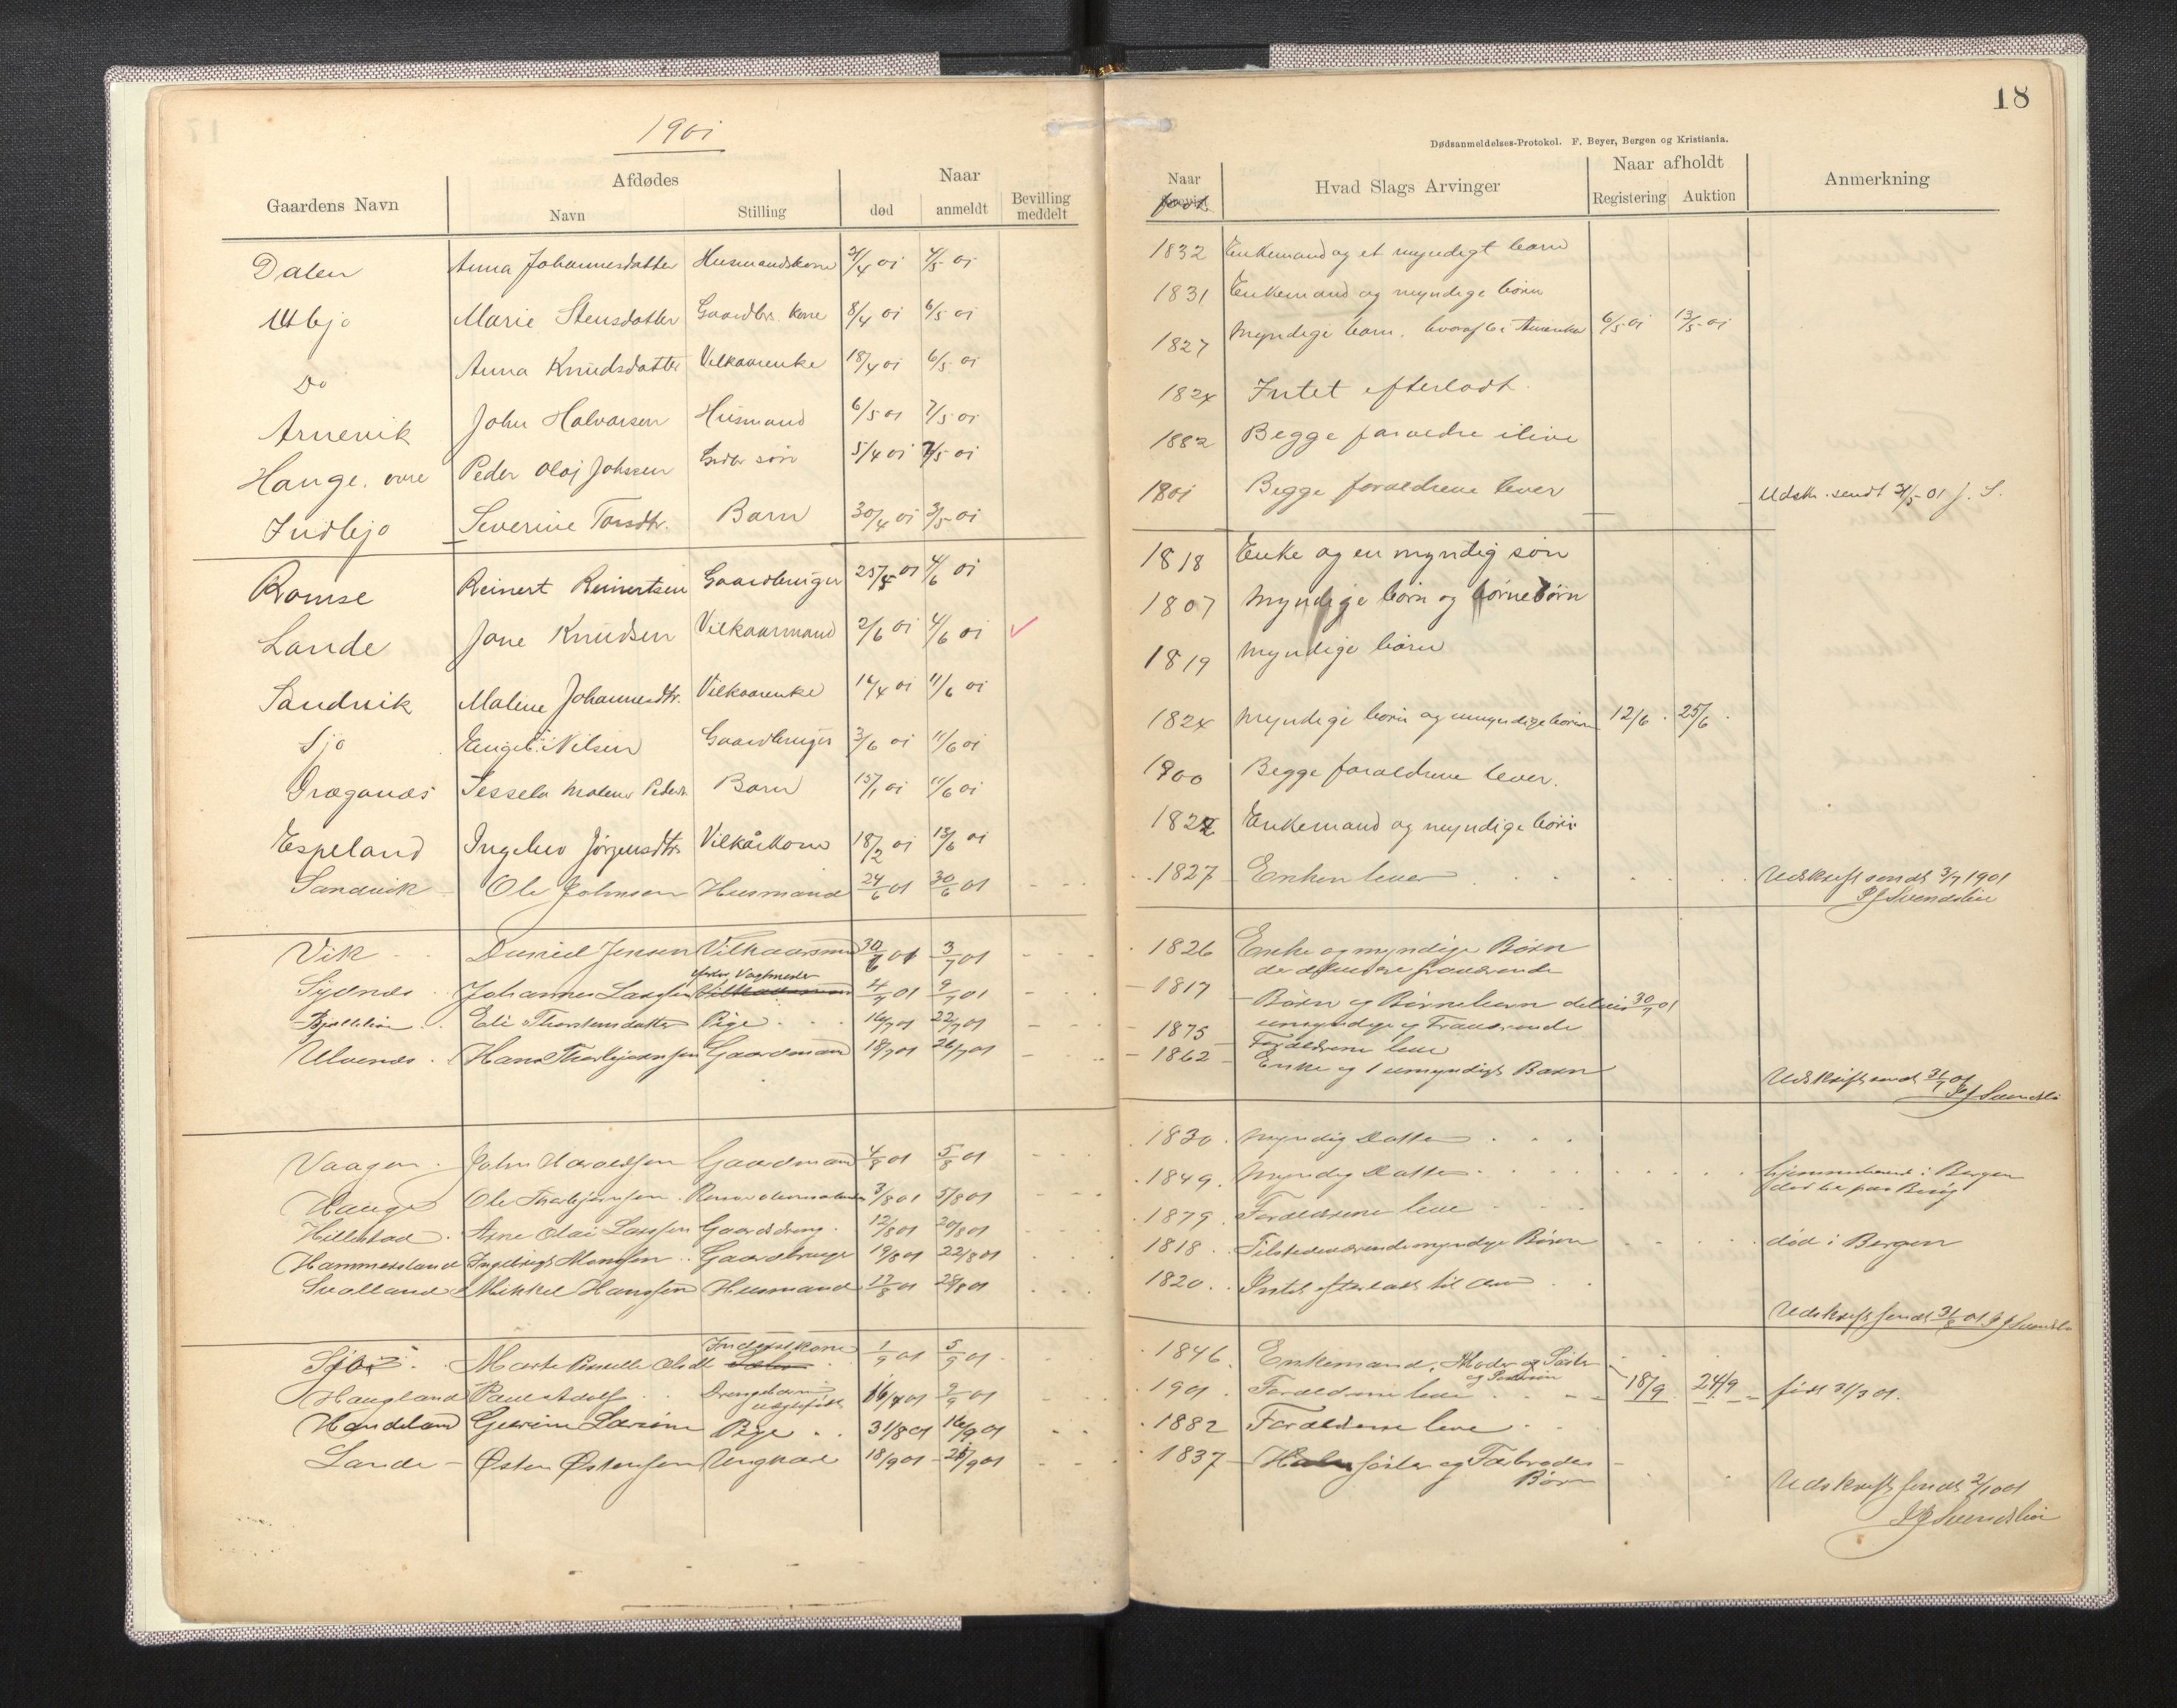 18
1901
Dødsanmeldelses-Protokol. F. Beyer, Bergen og Kristiania.
Gaardens Navn
Afdødes
Navn
Stilling
Naar
død
anmeldt
Bevilling meddelt
Naar
født
Hvad Slags Arvinger
Naar afholdt
Registering
Auktion
Anmerkning
Dalen Anna Johannesdatter Husmandskone /4 01 4/5 01 1832 Enkemand og et myndigt barn
Utbjo Marie Stensdatter Gaardbr. kone 8/4 01 6/5 01 1831 Enkemand og myndige børn
Do Anna Knudsdatter Vilkaarenke 18/4 01 6/5 01 1827 Myndige barn, Amerika 6/5 01 13/5 01
Arnevik John Halvorsen Husmand 6/5 01 7/5 01 1824 Intet efterladt.
Hauge, øvre Peder Olaj Johssen Grdbr søn 5/4 01 7/5 01 1882 Begge foraeldre ilive
Indbjo Severine Torsdtr. Barn 30/4 01 3/5 01 1901 Begge foraeldrene lever Udskr. sendt 31/5 01 J. S.
Romse Reinert Reinertsen Gaardbruger 25/5 01 4/6 01 1818 Enke og en myndig søn
Lande Jone Knudsen Vilkaarmand 2/6 01 4/6 01 1807 Myndige børn og børnebørn
Sandvik Malene Johannesdtr. Vilkaarenke /4 01 11/6 01 1819 Myndige børn
Sjo Engel. Nilsen Gaardbruger 3/6 01 11/6 01 1824 Myndige børn og umyndige børn 12/6 25/6
Draganæs Sessela Malene Pedersd Barn 15/1 01 11/6 01 1900 Begge foraeldrene lever.
Espeland Ingebor Jørgensdtr Vilkårkone 18/2 01 13/6 01 182 Enkemand og myndige børn
Sandvik Ole Johnsen Husmand 24/6 01 30/6 01 1827 Enken lever Udskrift sendt 3/7 1901
P J Svendsbøe
Vik Daniel Jensen Vilkaarsmand 30/6 01 3/7 01 1826 Enke og myndige Børn
Sydnes Johannes Larssen 4/7 01 9/7 01 1817 Børn og Børnebørn delvis 30/7 01
umyndige og Fraværende
Eli Thorstensdatter Pige 16/7 01 22/7 01 1875 Foraeldrene leve
Ulvenes Hans Thorbjørnsen Gaardmand 18/7 01 26/7 01 1862 Enke og 1 umyndigt Barn
Udskrift sendt 31/7 01
P J Svendsbø
Vaagen John Haraldsen Gaardmand 4/8 01 5/8 01 1830 Myndig Datter
Hauge Ole Thorbjørnsen 3/8 01 5/8 01 1849 Myndig Datter hjemmehørende i Bergen
Hillestad Arne Olai Larssen Gaardsdreng 12/8 01 20/8 01 1879 Foraeldrene leve
Hammersland Ingebrigt Monssen Gaardbruger 19/8 01 22/8 01 1818 Tilstedeværende myndige Børn død i Bergen
Svalland Mikkel Hanssen Husmand 17/8 01 28/8 01 1820 Intet efterladt til Arv
Udskrift sendt 31/8 01 P J Svendsbø
Sjo Marte Pernille Olsdt Inderstkone 1/9 01 5/9 01 1846 Enkemand, Moder og Søster
Haugland Paul Adolf Drengebarn uægtefødt 16/4 01 9/9 01 1901 Foraeldrene leve 18/9 24/9 født 31/3 01.
Handeland Gurine Larsine Pige 31/8 01 16/9 01 1882 Foraeldrene leve
Lande Østen Østensen Ungkarl 18/9 01 /9 01 1837 Halvsøster og Farbroders
Børn
Udskrift sendt 2/10 01
P J Svendsbøe